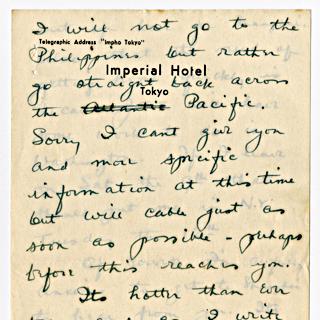 I will not go to the
Telegraphic Address "Impho Tokyo"
Philippines but rather
Imperial Hotel
go straight back across
Tokyo
the Atlantic Pacific.
Sorry I cant give you
and more specific
information at this time
but will cable just as
soon as possible - perhaps
before this reaches you.
Its hotter than ever
I write